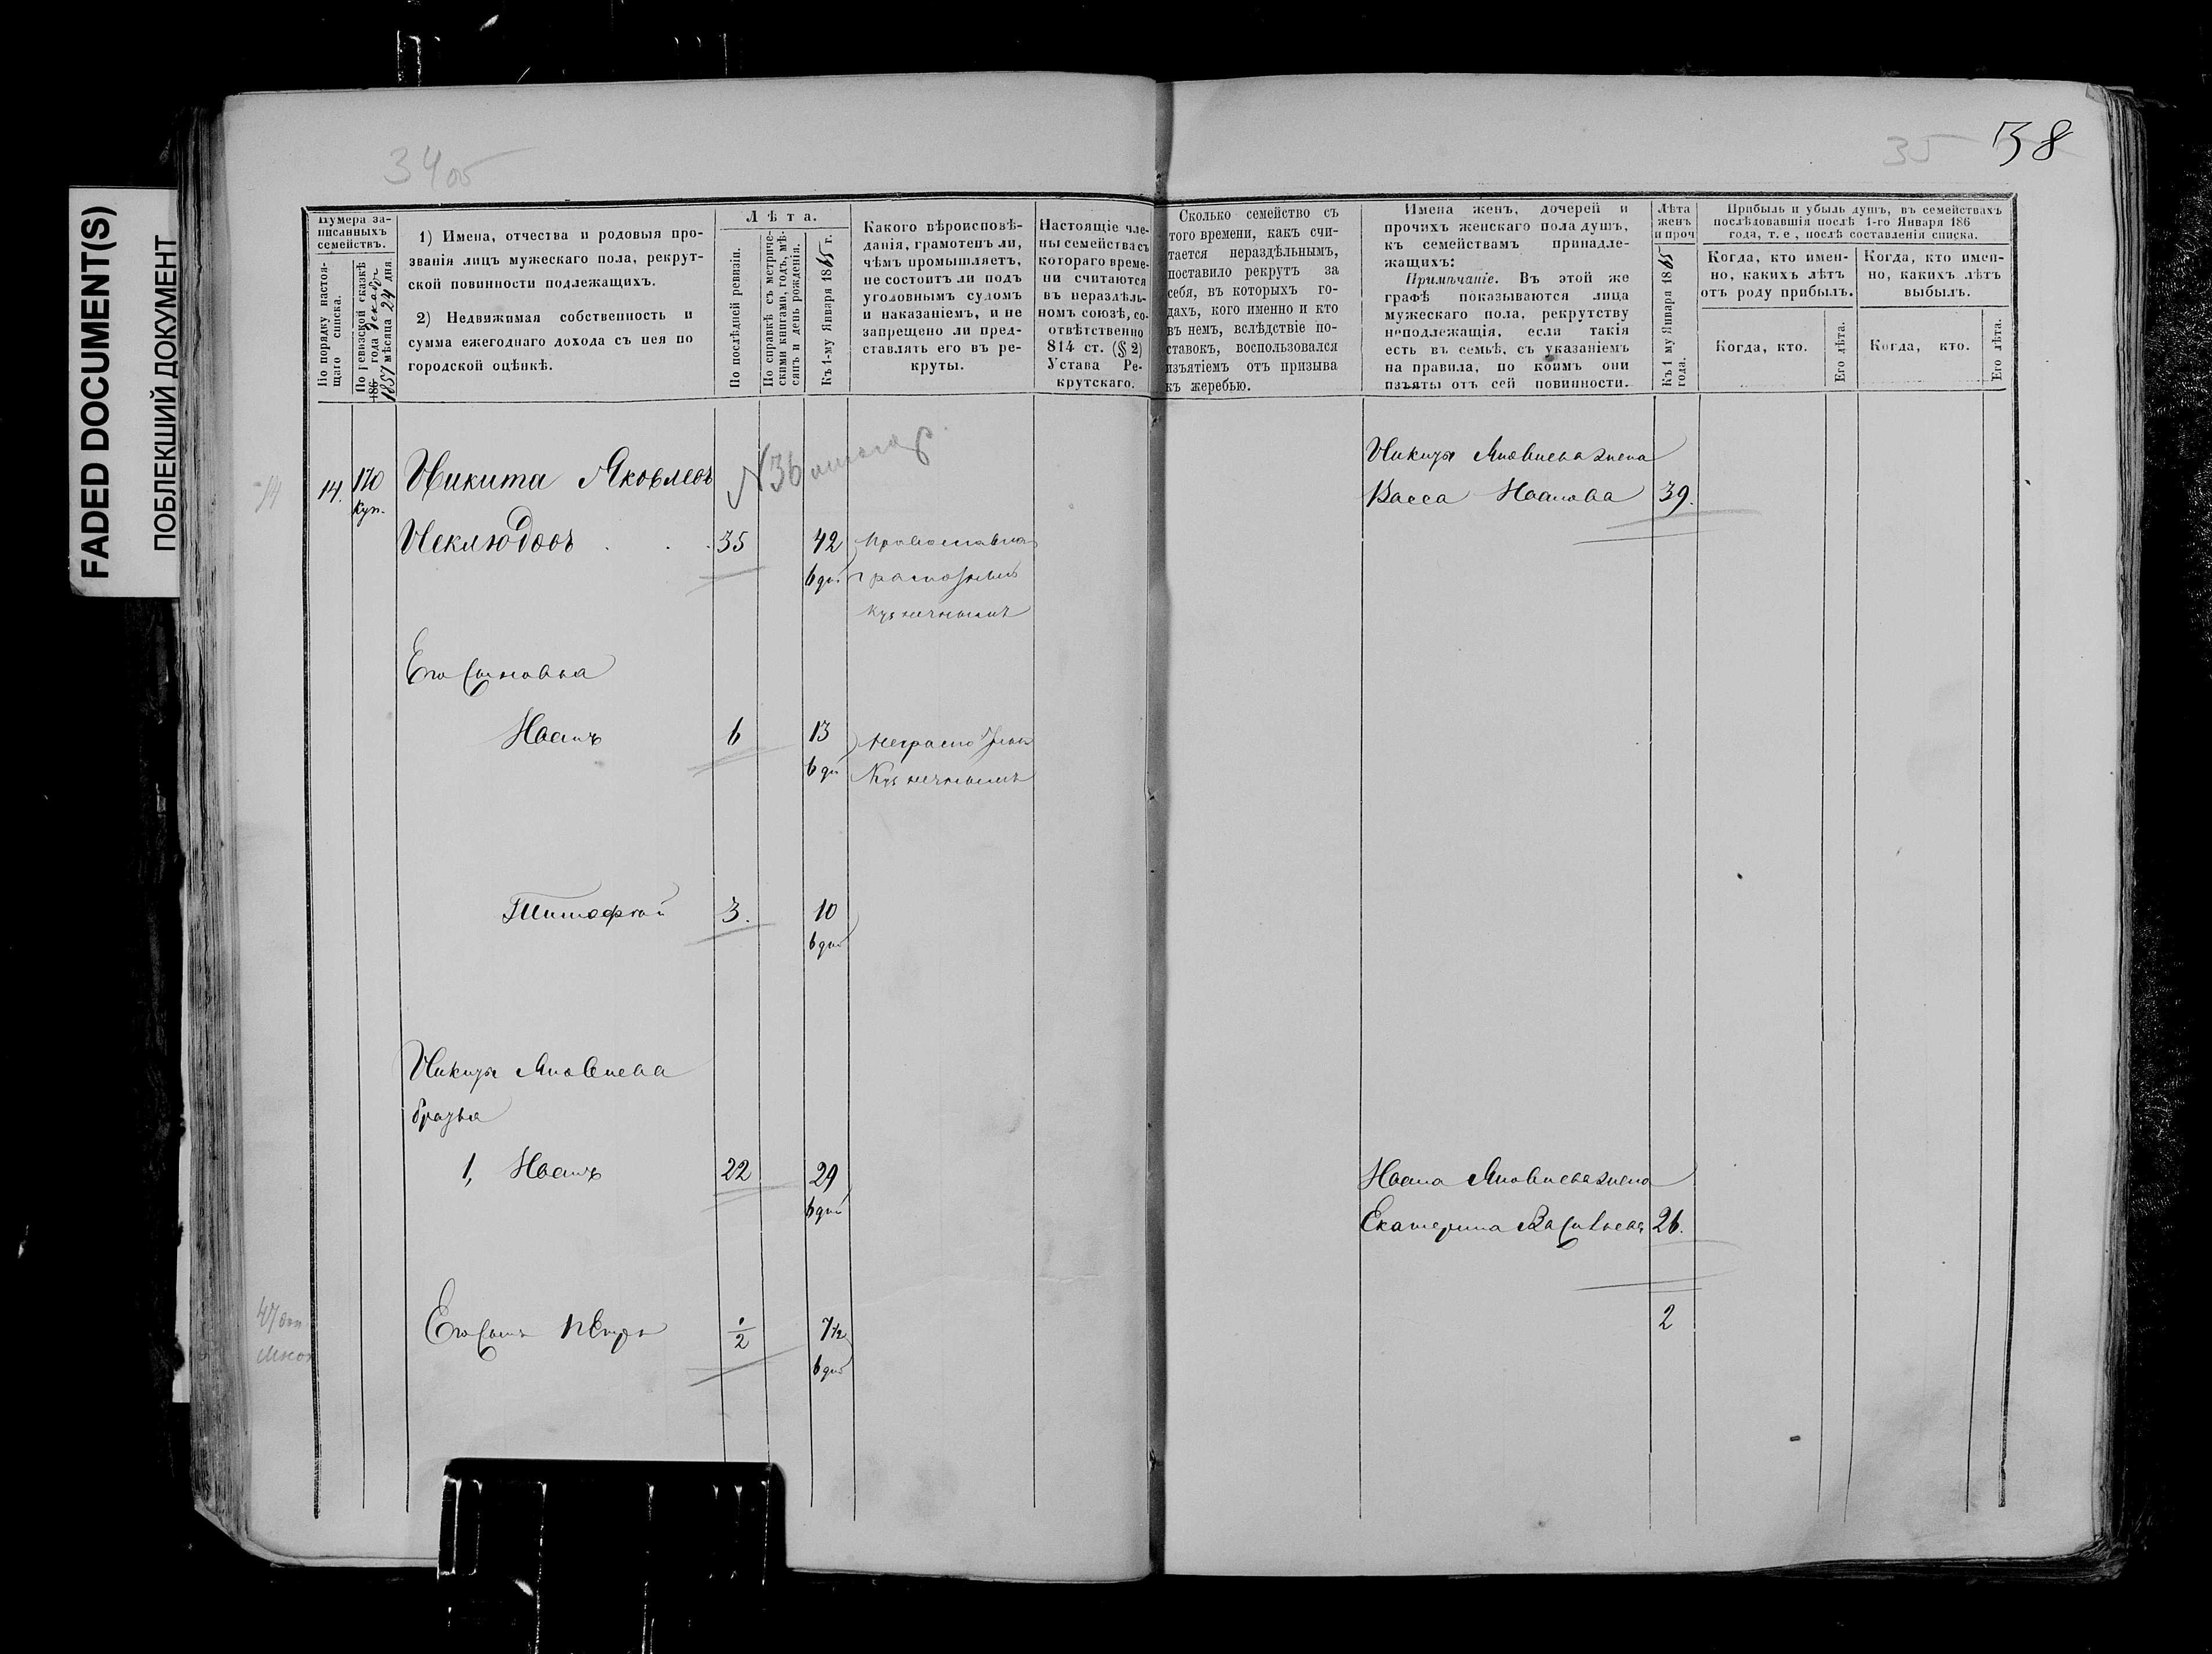 FADED DOCUMENT(S)
ПОБЛЕКШИЙ ДОКУМЕНТ
34 об
35
38
Нумера за-
писанныхъ
семействъ.
По порядку настоя-
щаго списка.
По ревизской сказкѣ
186 года декабр
1857 мѣсяца 24 дня.
1) Имена, отчества и родовыя про-
званія лицъ мужескаго пола, рекрут-
ской повинности подлежащихъ.
2) Недвижимая собственность и
сумма ежегоднаго дохода съ нея по
городской оцѣнкѣ.
Лѣта.
По послѣдней ревизіи.
По справкѣ съ метриче-
скими книгами, годъ, мѣ-
сяцъ и день рожденія.
Къ 1-му Января 1865 г.
Какого вѣроисповѣ-
данія, грамотенъ ли,
чѣмъ промышляетъ,
не состоитъ ли подъ
уголовнымъ судомъ
и наказаніемъ, и не
запрещено ли пред-
ставлять его въ ре-
круты.
Настоящіе чле-
ны семейства съ
котораго време-
ни считаются
въ нераздѣль-
номъ союзѣ, со-
отвѣтственно
814 ст. (§ 2)
Устава Ре-
крутскаго.
Сколько семейство съ
того времени, какъ счи-
тается нераздѣльнымъ,
поставило рекрутъ за
себя, въ которыхъ го-
дахъ, кого именно и кто
въ немъ, вслѣдствіе по-
ставокъ, воспользовался
изъятіемъ отъ призыва
къ жеребью.
Имена женъ, дочерей и
прочихъ женскаго пола душъ,
къ семействамъ принадле-
жащихъ:
Примѣчаніе. Въ этой же
графѣ показываются лица
мужескаго пола, рекрутству
неподлежащія, если такія
есть въ семьѣ, съ указаніемъ
на правила, по коимъ они
изъяты отъ сей повинности.
Лѣта
женъ
и проч
Къ 1 му Января 1865
года.
Прибыль и убыль душъ, въ семействахъ
послѣдовавшія послѣ 1-го Января 186
года, т. е, послѣ составленія списка.
Когда, кто имен-
но, какихъ лѣтъ
отъ роду прибылъ.
Когда, кто имен-
но, какихъ лѣтъ
выбылъ.
Когда, кто.
Его лѣта.
Когда, кто.
Его лѣта.
14
14. 170 Никита Яковлевъ N 36
куп.
Неклюдовъ . . . 35 42 Православна
6 дн грамотный
кузнечнымъ
Его сыновья
Иванъ 6 13 неграмотный
6 дн Кузнечнымъ
Тимофѣй 3. 10
6 дн
Никиты Яковлева
братья
1, Иванъ 22 29
6 дн
Его сынъ Петръ 1/2 7 1/2
6 дн
47
Никиты Яковлева жена
Васса Иванова 39.
Ивана Яковлева жена
Екатерина Васильева 26.
2